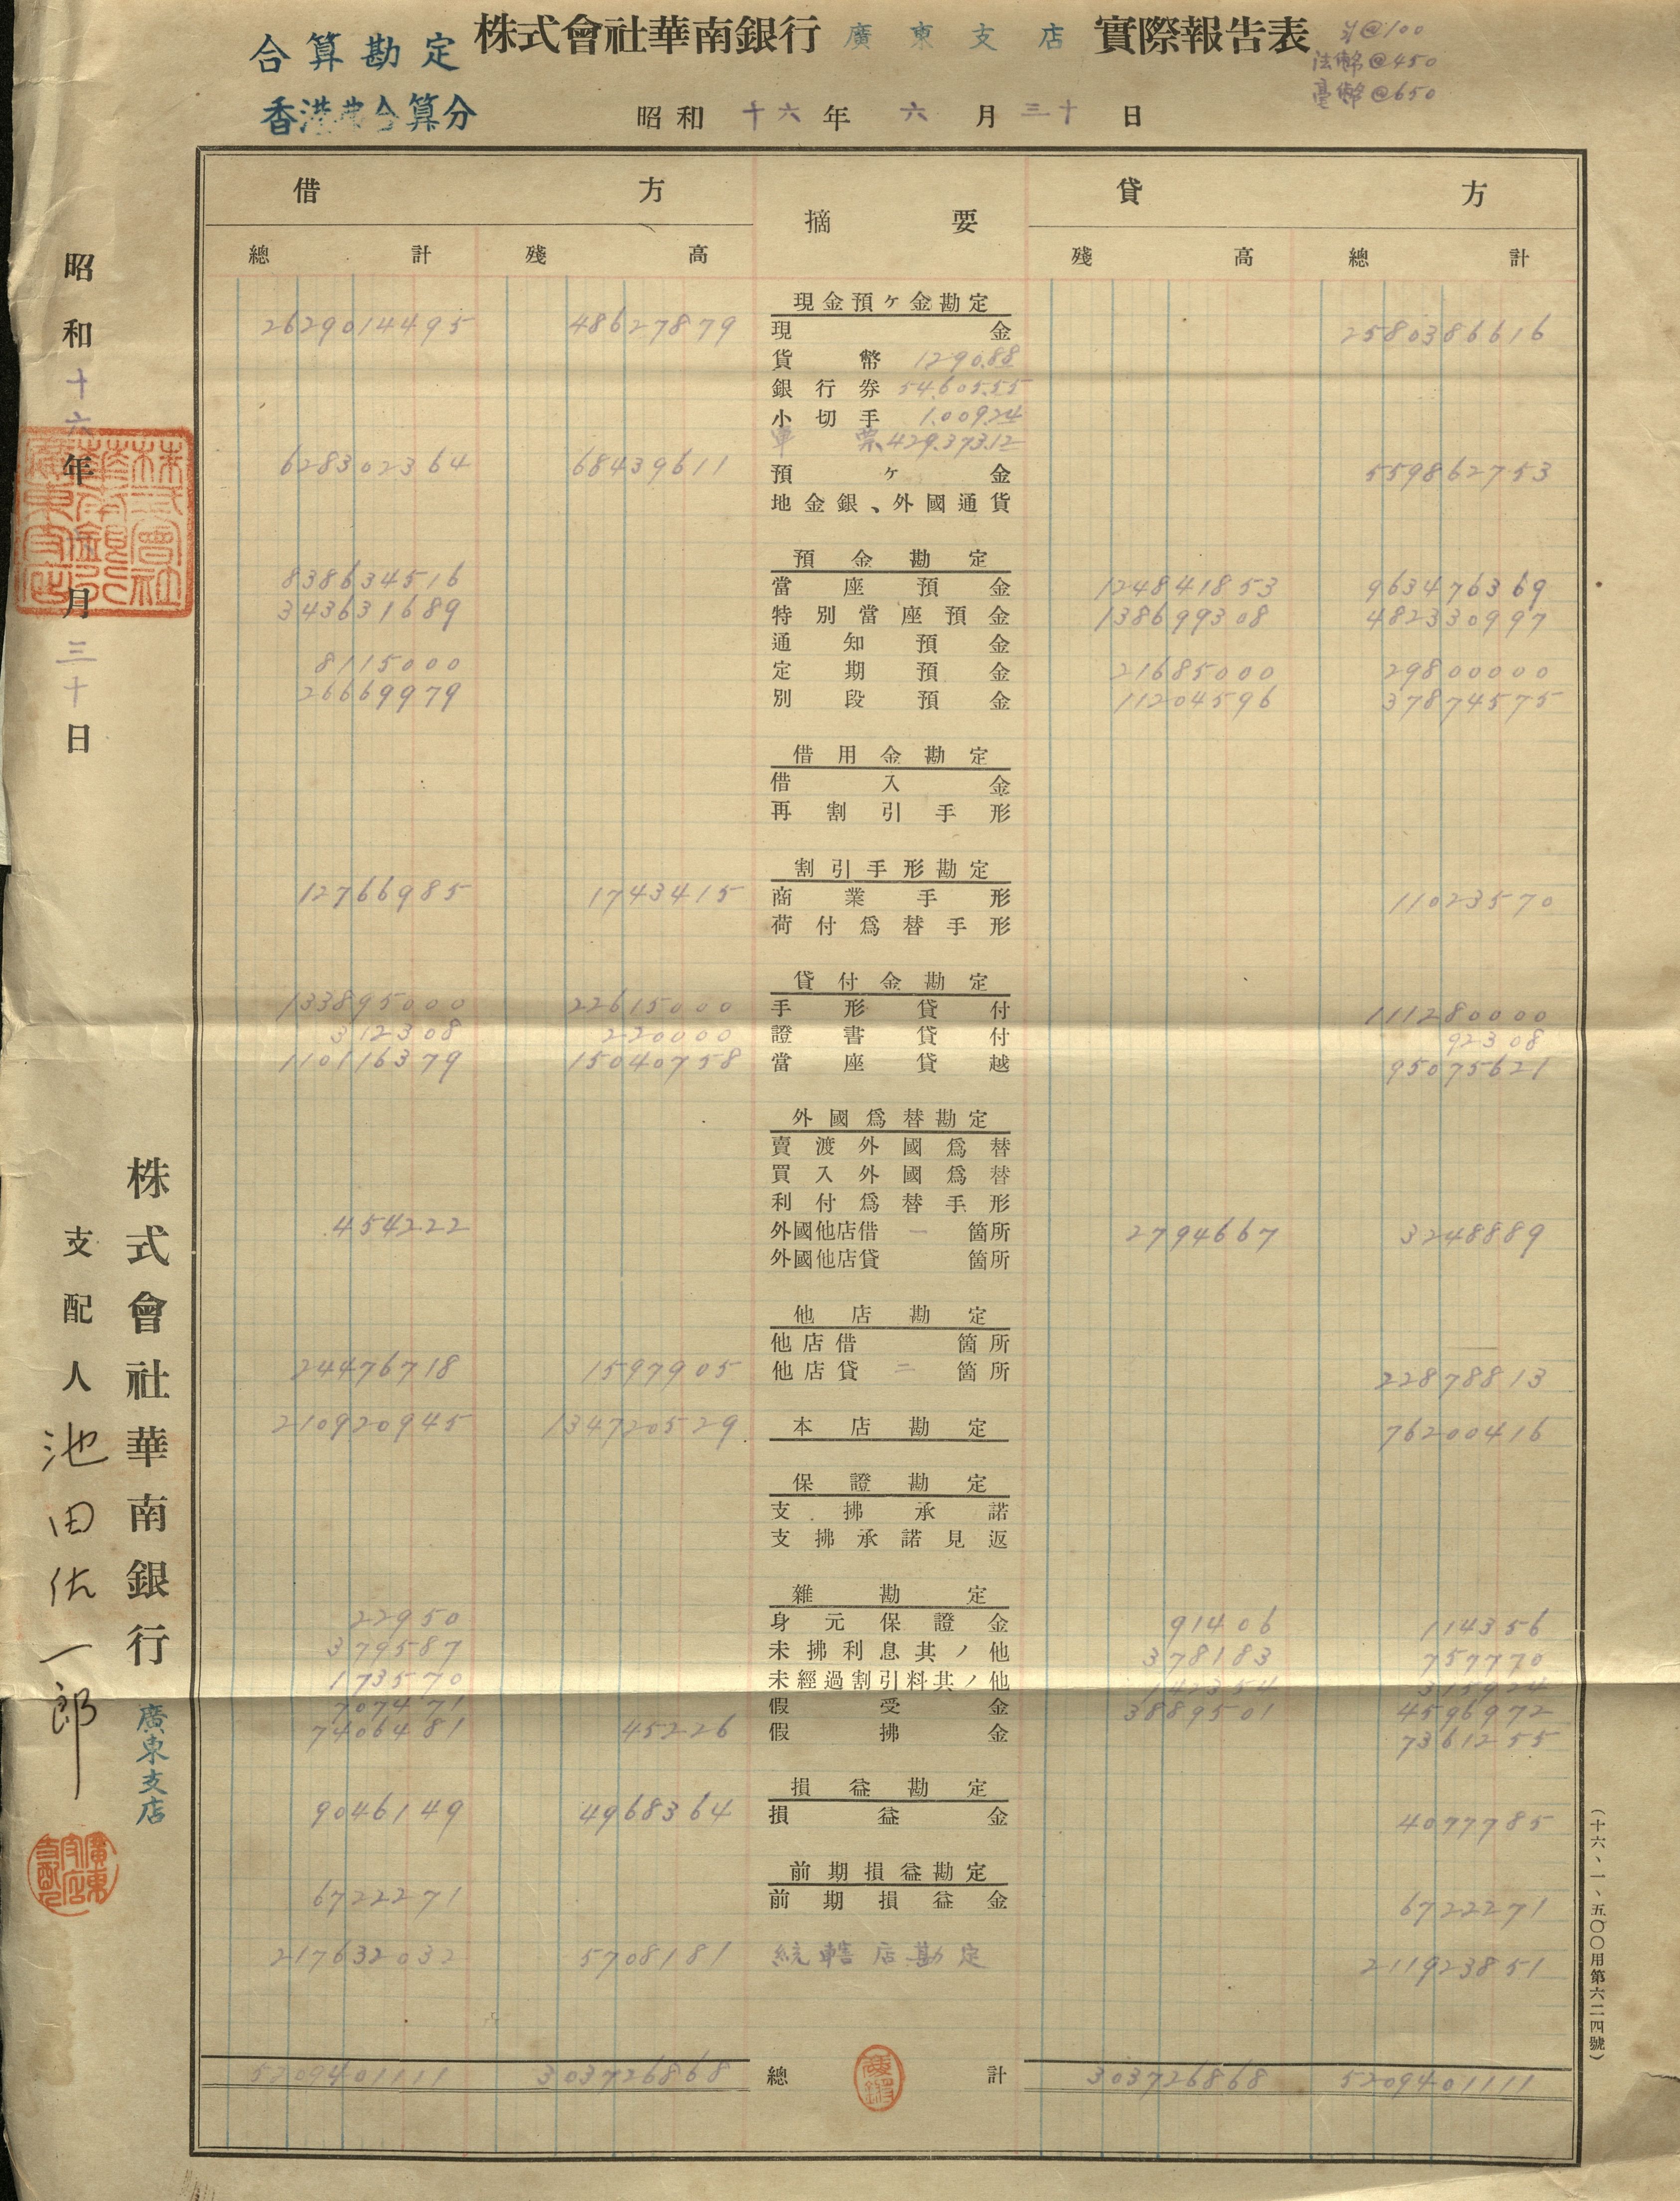 合算勘定
株式會社華南銀行 廣東支店 實際報告表
法幣@450
毫幣@650
昭和 十六 年 六 月 三十 日
借方 摘要 貸方
總計 殘高 殘高 總計
現金預ケ金勘定
2629014495 48627879 現金 2580386616
貨幣 1290.88
銀行券 54.605.55
小切手 1.009.24
軍票 429.373.12
628302364 68439611 預ケ金 559862753
地金銀、外國通貨
預金勘定
838634516 當座預金 124841853 963476369
343631689 特別當座預金 138699308 482330997
通知預金
8115000 定期預金 21685000 29800000
26669979 別段預金 11204596 37874575
借用金勘定
借入金
再割引手形
割引手形勘定
12766985 1743415 商業手形 11023570
荷付爲替手形
貸付金勘定
133895000 22615000 手形貸付 111280000
312308 220000 證書貸付 92308
110116379 15040758 當座貸越 95075621
外國爲替勘定
賣渡外國爲替
買入外國爲替
利付爲替手形
454222 外國他店借 一 箇所 2794667 3248889
外國他店貸 箇所
他店勘定
他店借 箇所
24476718 1597905 他店貸 二 箇所 22878813
210920945 134720529 本店勘定 76200416
保證勘定
支拂承諾
支拂承諾見返
雜勘定
22950 身元保證金 91406 114356
379587 未拂利息其ノ他 378183 757770
173570 未經過割引料其ノ他 142354 315924
707471 假受金 3889501 4596972
7406481 45226 假拂金 7361255
損益勘定
9046149 4968364 損益金 4077785
前期損益勘定
6722271 前期損益金 6722271
217632032 5708181 統轄店勘定 211923851
5209401111 303726868 總計 303726868 5209401111
昭和十六年六月三十日
株式會社華南銀行 廣東支店
支配人 池田佐一郎
株式會社華南銀行廣東支店
(十六、一、五〇〇用第六二四號)